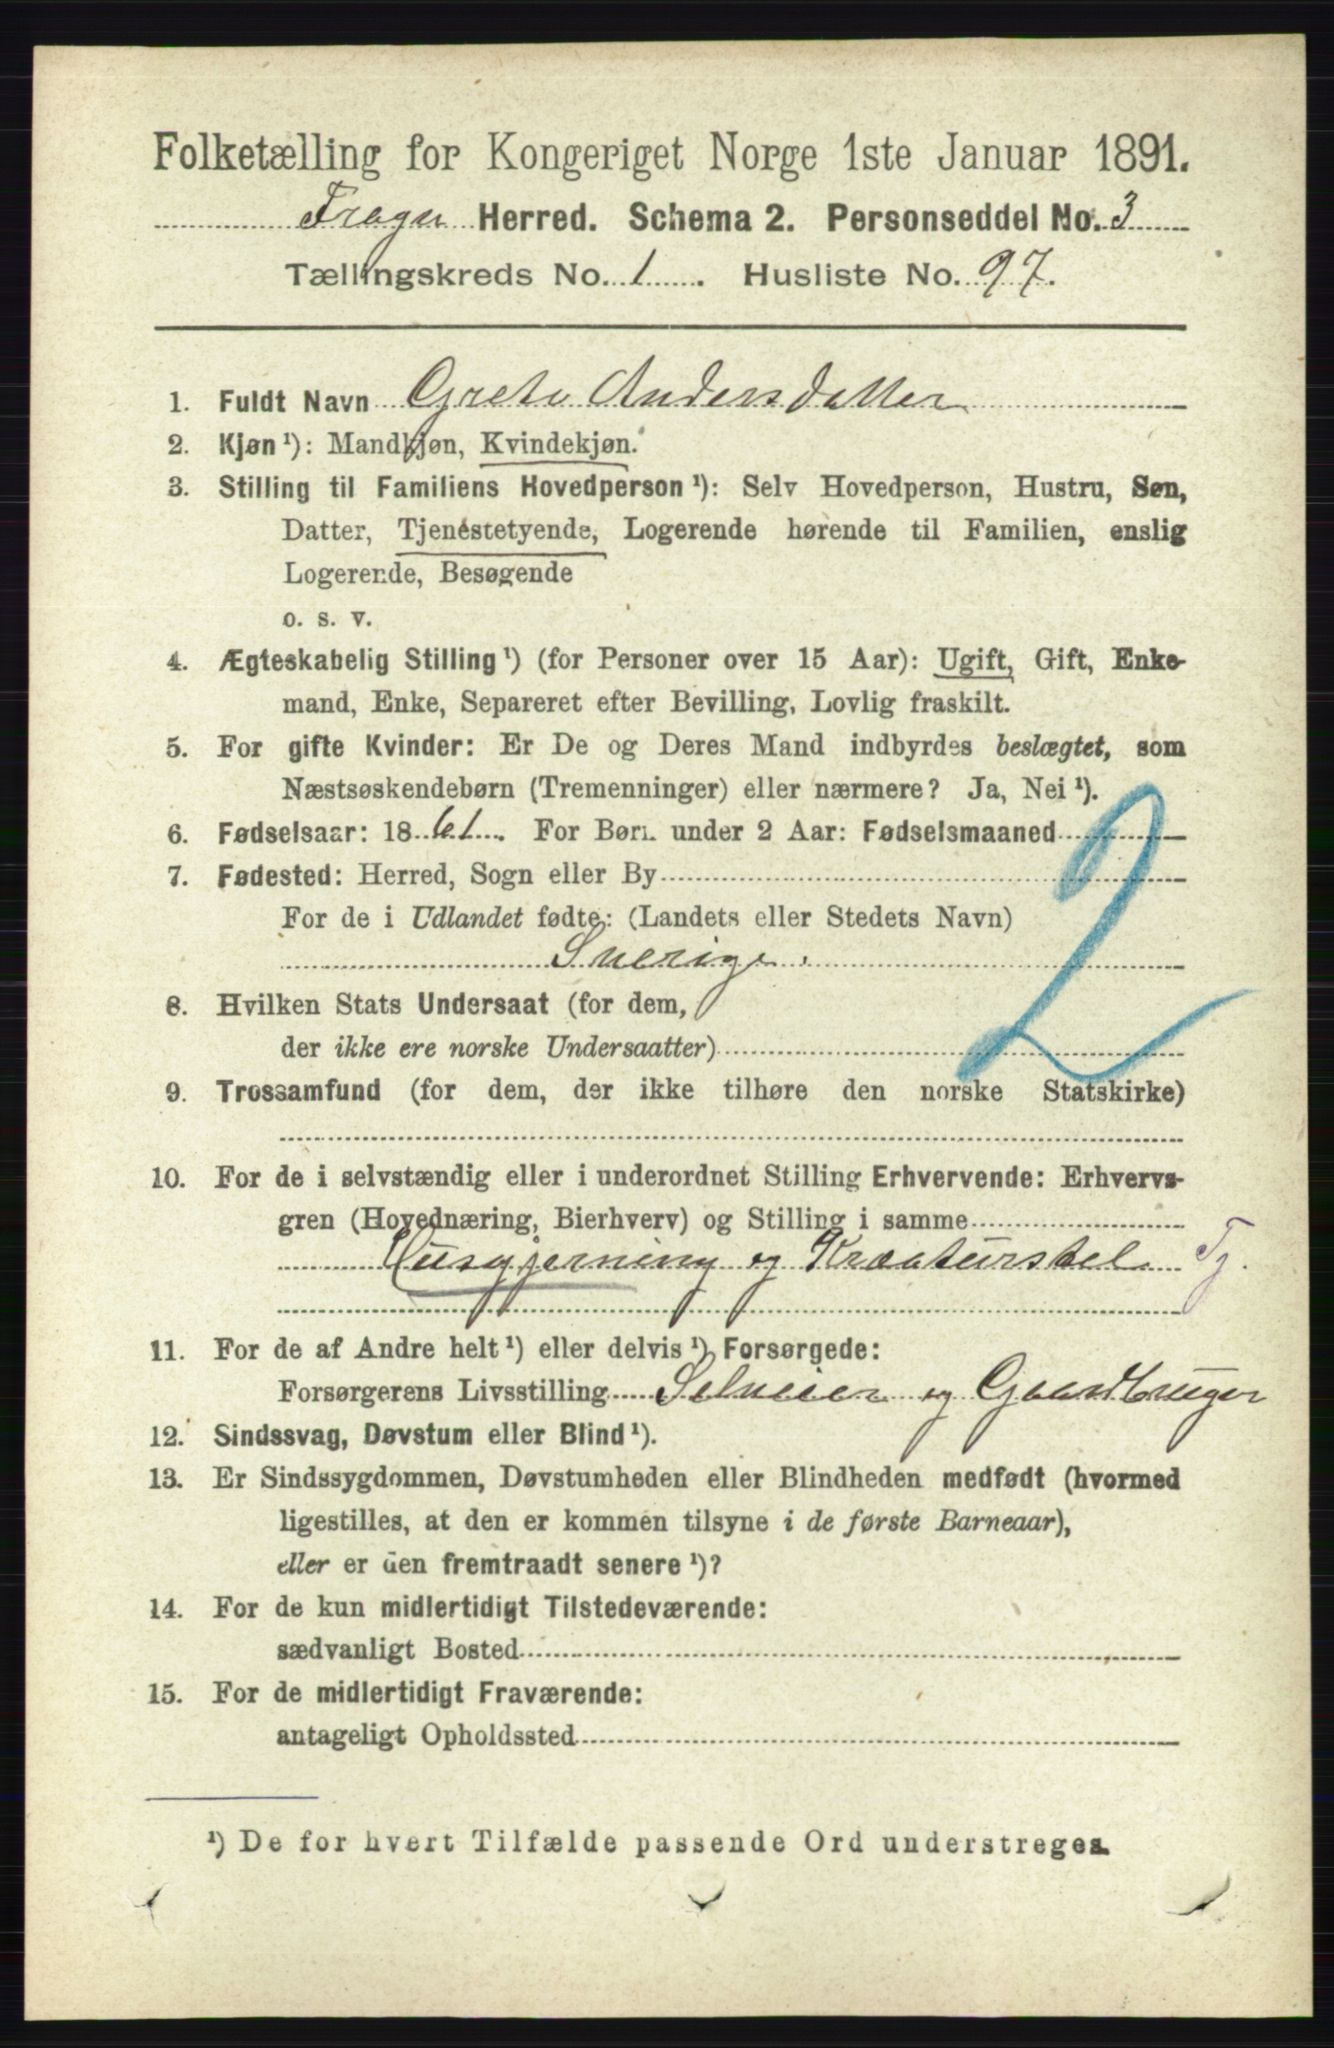 Folketælling for Kongeriget Norge 1ste Januar 1891.
Frogn Herred. Schema 2. Personseddel No. 3
Tællingskreds No. 1. Husliste No. 97.
1. Fuldt Navn Grete Andersdatter
2. Kjøn¹): Mandkjøn, Kvindekjøn.
3. Stilling til Familiens Hovedperson¹): Selv Hovedperson, Hustru, Søn,
Datter, Tjenestetyende, Logerende hørende til Familien, enslig
Logerende, Besøgende
o. s. v.
4. Ægteskabelig Stilling¹) (for Personer over 15 Aar): Ugift, Gift, Enke-
mand, Enke, Separeret efter Bevilling, Lovlig fraskilt.
5. For gifte Kvinder: Er De og Deres Mand indbyrdes beslægtet, som
Næstsøskendebørn (Tremenninger) eller nærmere? Ja, Nei¹).
6. Fødselsaar: 1861. For Børn under 2 Aar: Fødselsmaaned
7. Fødested: Herred, Sogn eller By
For de i Udlandet fødte: (Landets eller Stedets Navn)
Sverige.
2
8. Hvilken Stats Undersaat (for dem,
der ikke ere norske Undersaatter)
9. Trossamfund (for dem, der ikke tilhøre den norske Statskirke)
10. For de i selvstændig eller i underordnet Stilling Erhvervende: Erhvervs-
gren (Hovednæring, Bierhverv) og Stilling i samme
Husgjerning og Kreaturstel Tj.
11. For de af Andre helt¹) eller delvis¹) Forsørgede:
Forsørgerens Livsstilling Selveier og Gaardbruger
12. Sindssvag, Døvstum eller Blind¹).
13. Er Sindssygdommen, Døvstumheden eller Blindheden medfødt (hvormed
ligestilles, at den er kommen tilsyne i de første Barneaar),
eller er den fremtraadt senere¹)?
14. For de kun midlertidigt Tilstedeværende:
sædvanligt Bosted
15. For de midlertidigt Fraværende:
antageligt Opholdssted
¹) De for hvert Tilfælde passende Ord understreges.